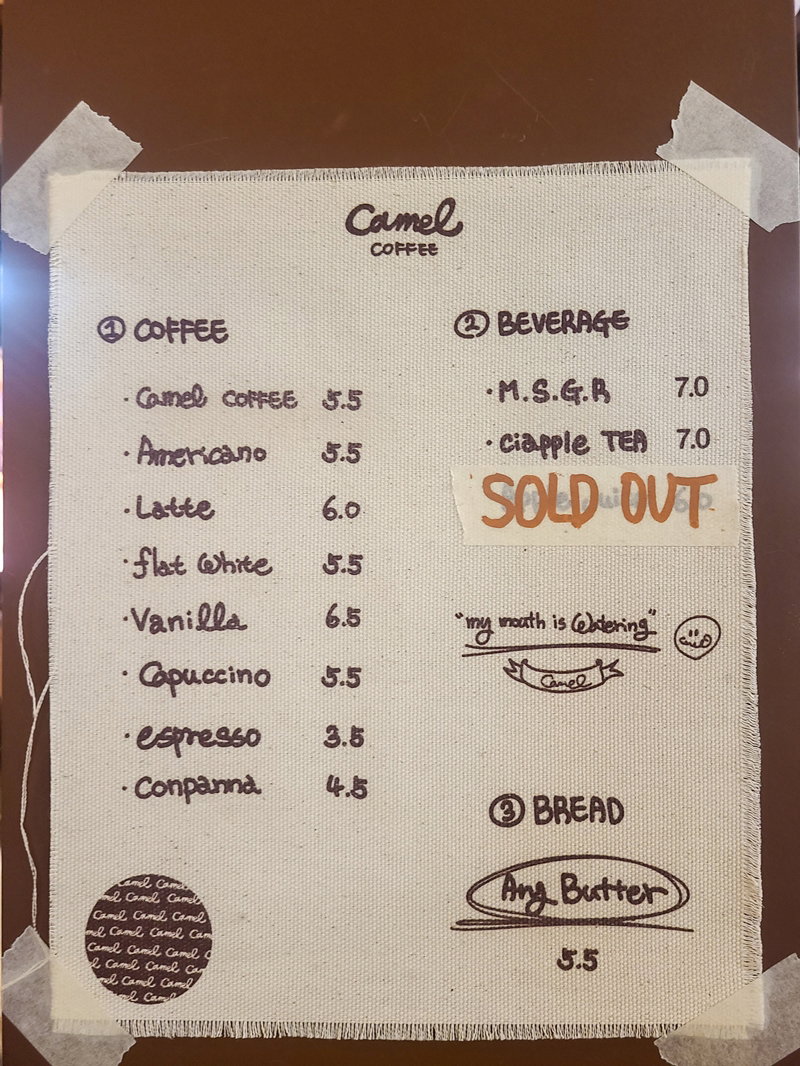 Camel
COFFEE
① COFFEE
· Camel COFFEE 5.5
· Americano 5.5
· Latte 6.0
· flat White 5.5
· Vanilla 6.5
· Capuccino 5.5
· espresso 3.5
· Conpanna 4.5
② BEVERAGE
· M.S.G.R 7.0
· ciapple TEA 7.0
SOLD OUT
6.0
"my mouth is Watering"
Camel
③ BREAD
Ang Butter
5.5
Camel Camel
mel Camel Camel
Camel Camel Camel
mel Camel Camel Cam
Camel Camel Camel C
l Camel Camel Camel
mel Camel Camel
Camel Came